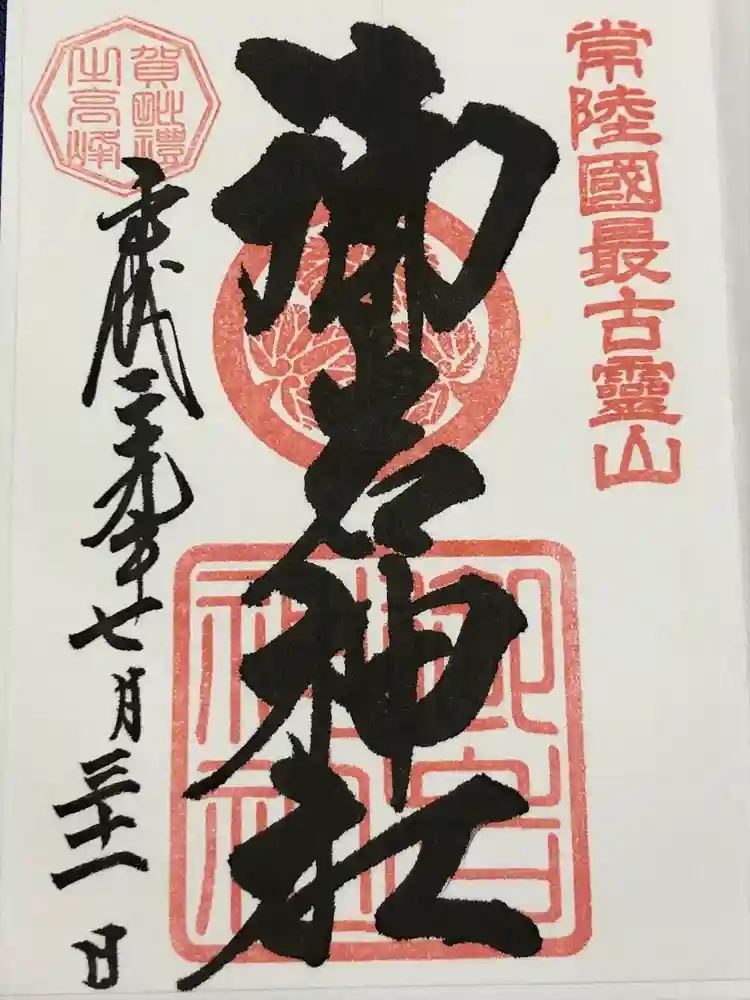 常陸國最古靈山
御岩神社
御岩神社
賀毗禮
之高峰
平成二十九年七月三十一日